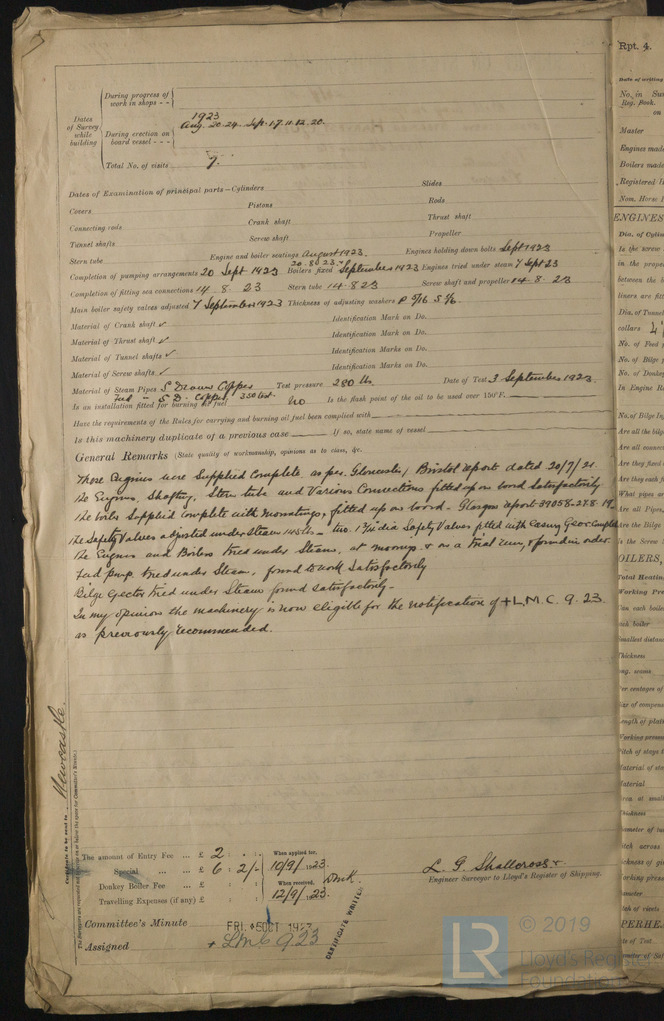 During progress of work in shops - -
Dates of Survey while building
1923
Aug. 20. 24. Sept. 1. 7. 11. 12. 20.
During erection on board vessel - - -
Total No. of visits 7.
Dates of Examination of principal parts—Cylinders Slides
Covers Pistons Rods
Connecting rods Crank shaft Thrust shaft
Tunnel shafts Screw shaft Propeller
Stern tube Engine and boiler seatings August 1923. Engines holding down bolts Sept 1923
Completion of pumping arrangements 20 Sept 1923 Boilers fixed September 1923 Engines tried under steam 7 Sept 23
Completion of fitting sea connections 14. 8. 23 Stern tube 14.8.23 Screw shaft and propeller 14. 8. 23
Main boiler safety valves adjusted 7 September 1923 Thickness of adjusting washers P 5/16 S 5/16
Material of Crank shaft ✓ Identification Mark on Do.
Material of Thrust shaft ✓ Identification Mark on Do.
Material of Tunnel shafts ✓ Identification Marks on Do.
Material of Screw shafts ✓ Identification Marks on Do.
Material of Steam Pipes S Drawn Copper Test pressure 280 lbs. Date of Test 3 September 1923.
Feed — S D. Copper, 350 test.
Is an installation fitted for burning oil fuel no Is the flash point of the oil to be used over 150°F.
Have the requirements of the Rules for carrying and burning oil fuel been complied with
Is this machinery duplicate of a previous case If so, state name of vessel
General Remarks (State quality of workmanship, opinions as to class, &c.
These Engines were Supplied Complete as per Gloucester, Bristol report dated 20/7/21
The Engines, Shafting, Stern tube and Various Connections fitted up on board Satisfactorily
The boiler Supplied complete with Mountings, fitted up on board. Glasgow report 39058-27.8.19
The Safety Valves adjusted under Steam 145 lbs — two 1¾ dia Safety Valves fitted with Easing Gear Complete
The Engines and Boilers tried under Steam, at moorings & on a trial run, & found in order
Feed pump tried under Steam, found to work Satisfactorily
Bilge Ejector tried under Steam found satisfactorily.
In my opinion the machinery is now eligible for the notification of + L.M.C. 9.23.
as previously recommended.
Certificate to be sent to Newcastle.
The amount of Entry Fee ... £ 2 : : When applied for,
Special ... ... £ 6 : 2/- 10/9/1923.
Donkey Boiler Fee ... £ : : When received,
Travelling Expenses (if any) £ : : 12/9/23
L. G. Shallcross
Engineer Surveyor to Lloyd's Register of Shipping.
Committee's Minute FRI. 5 OCT 1923
Assigned + LMC 9.23
CERTIFICATE WRITTEN
Rpt. 4.
Date of writing
No. in
Reg. Book.
on
Master
Engines made
Boilers made
Registered H
Nom. Horse P
ENGINES
© 2019
LR
Lloyd's Register
Foundation